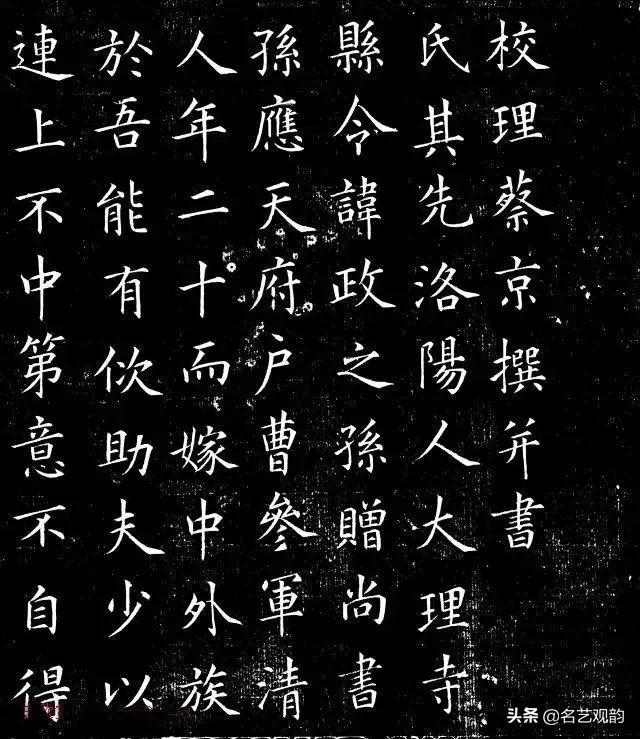 校理蔡京撰并書
氏其先洛陽人大理寺
縣令諱政之孫贈尚書
孫應天府户曹參軍清
人年二十而嫁中外族
於吾能有佽助夫少以
連上不中第意不自得
头条 @名艺观韵